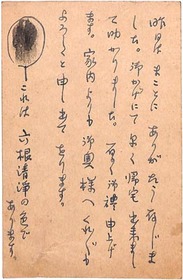 昨日はまことにありがたう存じま
した。御かげにて早く帰宅出来まし
て助かりました。厚く御禮申上げ
ます。家内よりも御奥様へくれぐれも
よろしくと申し出て居ります。
これは六根清浄の色で
あります